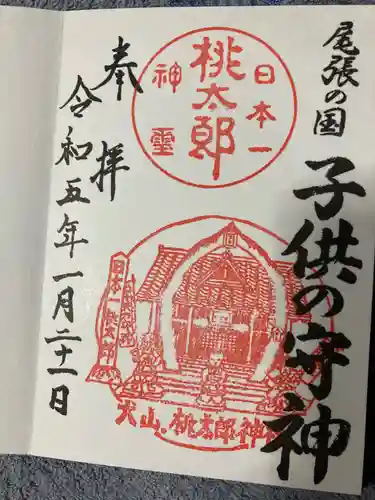 尾張の国
子供の守神
日本一
桃太郎
神霊
奉拝
令和五年一月二十一日
日本一桃太郎神
犬山、桃太郎神社